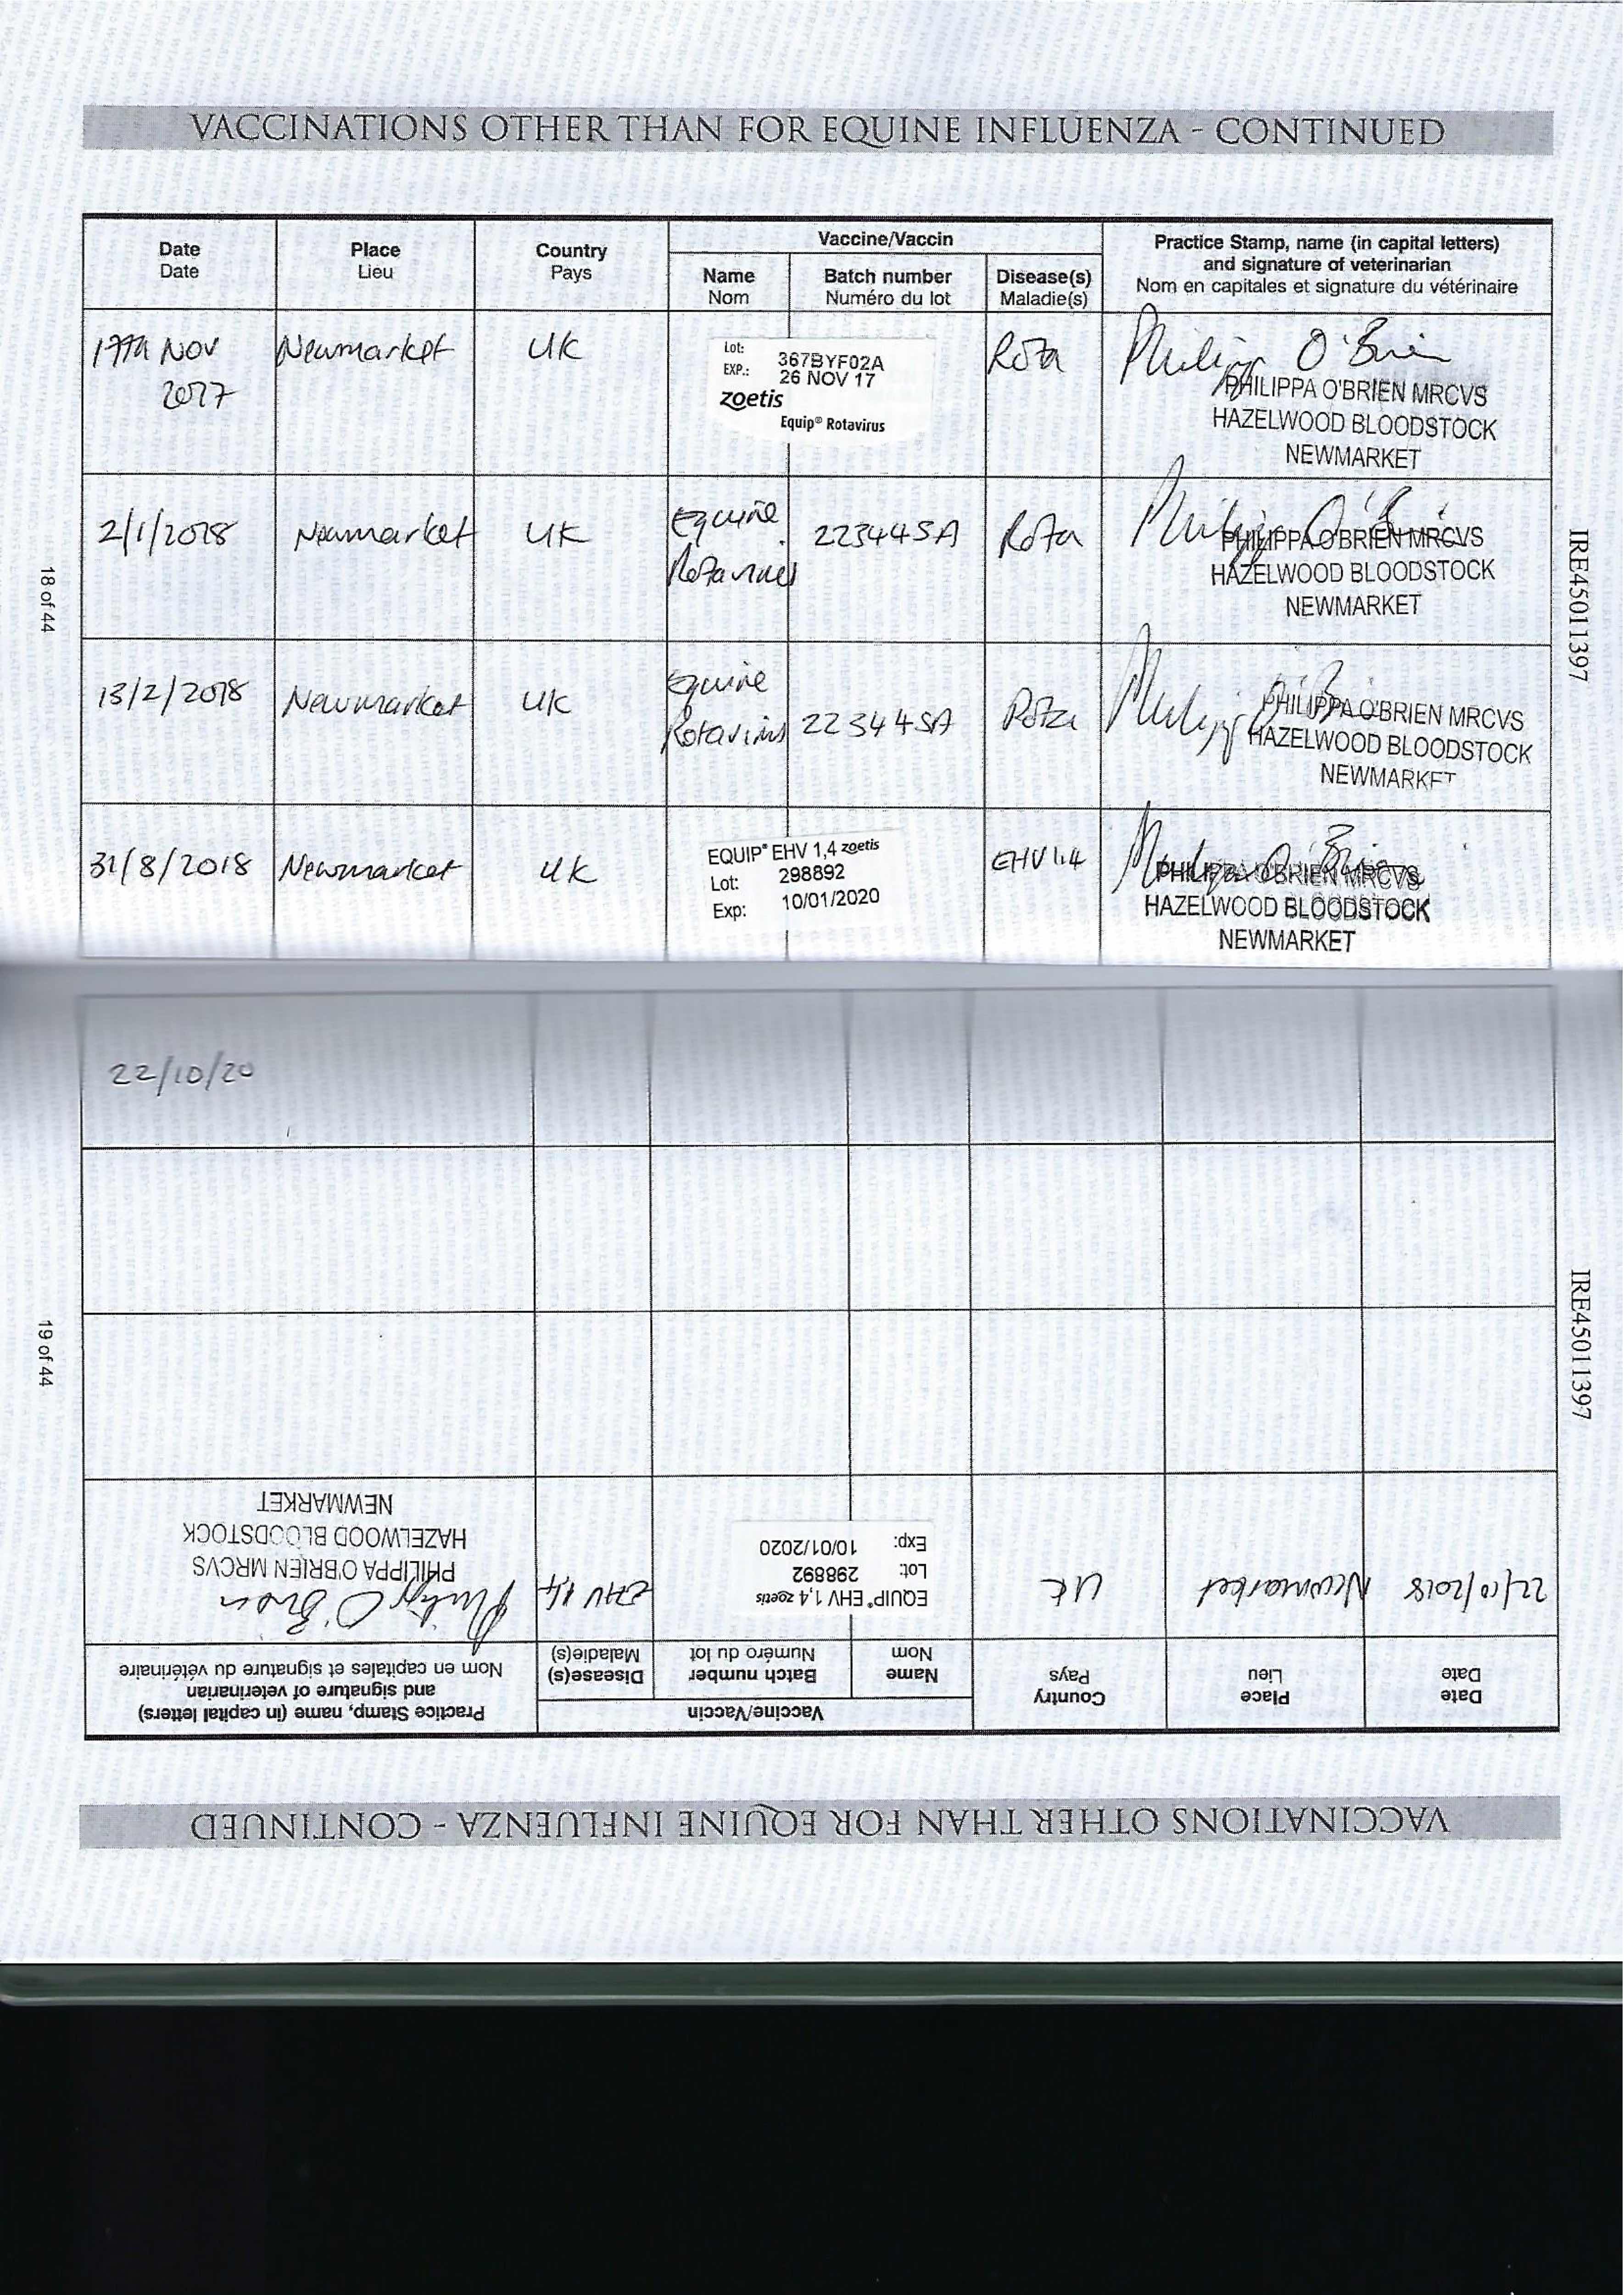 VACCINATIONS OTHER THAN FOR EQUINE INFLUENZA - CONTINUED
Date Place Country Vaccine/Vaccin Practice Stamp, name (in capital letters)
Date Lieu Pays Name Batch number Disease(s) and signature of veterinarian
Nom Numéro du lot Maladie(s) Nom en capitales et signature du vétérinaire
Nov Newmarket UK Lot: 367BYF02A Rota Philippa O'Brien
2017 EXP.: 26 NOV 17 PHILIPPA O'BRIEN MRCVS
zoetis HAZELWOOD BLOODSTOCK
Equip® Rotavirus NEWMARKET
2/1/2018 Newmarket UK Equine 223445A Rota PHILIPPA O'BRIEN MRCVS
Rotavirus HAZELWOOD BLOODSTOCK
NEWMARKET
13/2/2018 Newmarket UK Equine 223445A Rota PHILIPPA O'BRIEN MRCVS
Rotavirus HAZELWOOD BLOODSTOCK
NEWMARKET
31/8/2018 Newmarket UK EQUIP® EHV 1,4 zoetis EHV 1.4 PHILIPPA O'BRIEN MRCVS
Lot: 298892 HAZELWOOD BLOODSTOCK
Exp: 10/01/2020 NEWMARKET
18 of 44
IRE45011397
VACCINATIONS OTHER THAN FOR EQUINE INFLUENZA - CONTINUED
Date Place Country Vaccine/Vaccin Practice Stamp, name (in capital letters)
Date Lieu Pays Name Batch number Disease(s) and signature of veterinarian
Nom Numéro du lot Maladie(s) Nom en capitales et signature du vétérinaire
22/10/2018 Newmarket UK EQUIP® EHV 1,4 zoetis EHV 1,4 Philippa O'Brien
Lot: 298892 PHILIPPA O'BRIEN MRCVS
Exp: 10/01/2020 HAZELWOOD BLOODSTOCK
NEWMARKET
22/10/20
19 of 44
IRE45011397